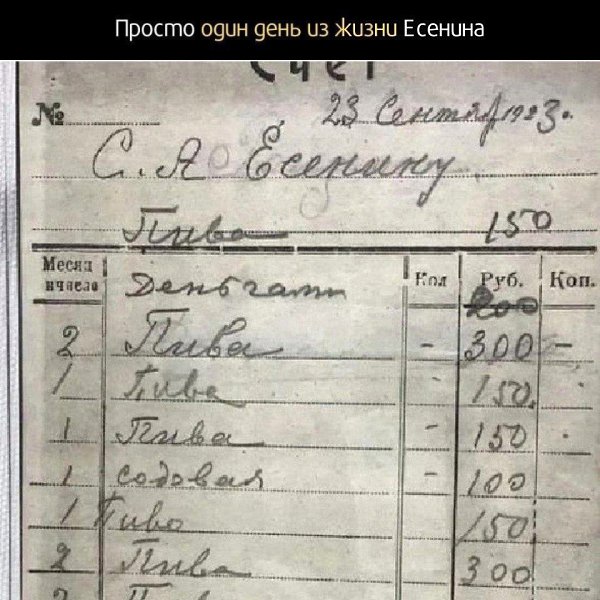 Просто один день из жизни Есенина
Счет
№ 23 Сентяб 1923г.
С. А Есенину
Пива 150
Месяц и число Деньгами Кол Руб. Коп.
200
2 Пива - 300 -
1 Пива - 150
1 Пива - 150
1 содовая - 100
1 Пиво 150
2 Пива 300
2 Пива